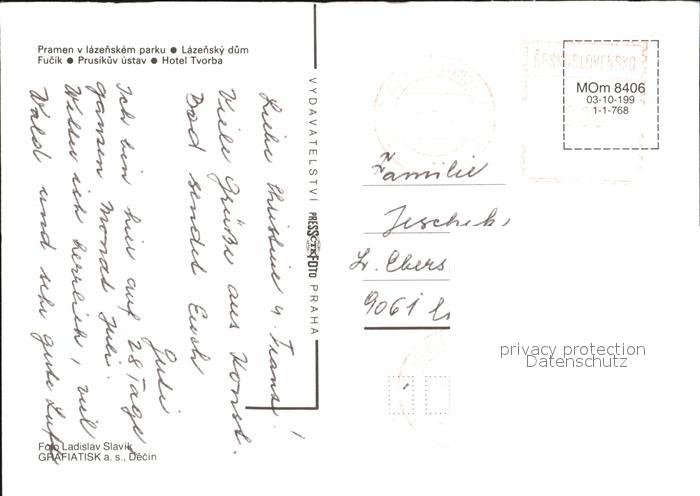 Pramen v lázeňském parku ● Lázeňský dům
Fučík ● Prusíkův ústav ● Hotel Tvorba
Liebe Christine u. Franz!
Viele Grüße aus Konst.
Bad sendet Euch
Ich bin hier auf 28 Tage,
ganzen Monat Juli.
Wetter ist herrlich, viel
Wald und sehr gute Luft
Foto Ladislav Slavík
GRAFIATISK a. s., Děčín
VYDAVATELSTVÍ PRESSFOTO PRAHA
ČTK
ČESKOSLOVENSKO
MOm 8406
03-10-199
1-1-768
Familie
Jeschek
Ebers
9061
privacy protection
Datenschutz